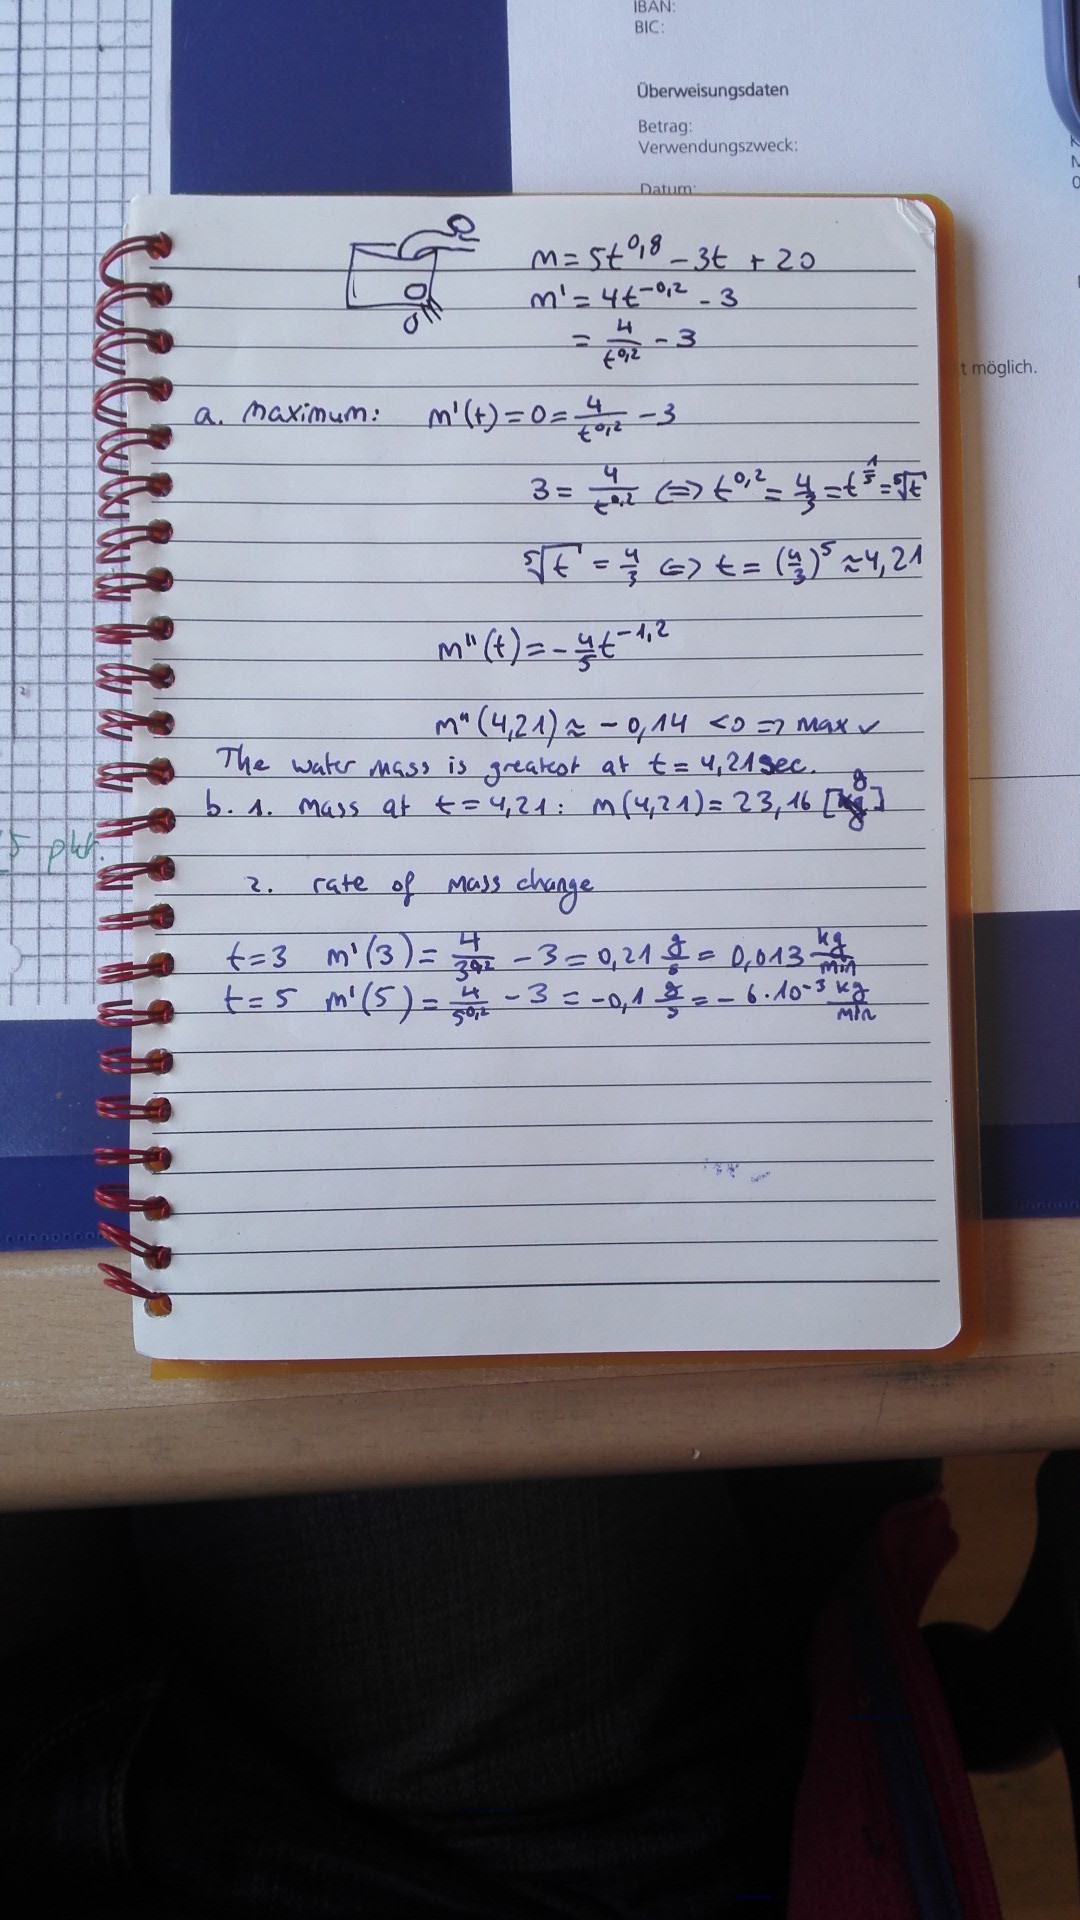 IBAN:
BIC:
Überweisungsdaten
Betrag:
Verwendungszweck:
Datum:
t möglich.
m = 5t^0,8 - 3t + 20
m' = 4t^-0,2 - 3
= 4/t^0,2 - 3
a. Maximum: m'(t) = 0 = 4/t^0,2 - 3
3 = 4/t^0,2 <=> t^0,2 = 4/3 = t^1/5 = ⁵√t
⁵√t = 4/3 <=> t = (4/3)^5 ≈ 4,21
m''(t) = - 4/5 t^-1,2
m''(4,21) ≈ - 0,14 <0 => max ✓
The water mass is greatest at t = 4,21 sec.
b. 1. Mass at t = 4,21: m(4,21) = 23,16 [g]
2. rate of mass change
t=3 m'(3) = 4/3^0,2 - 3 = 0,21 g/s = 0,013 kg/min
t=5 m'(5) = 4/5^0,2 - 3 = -0,1 g/s = - 6·10^-3 kg/min
5 pkt.